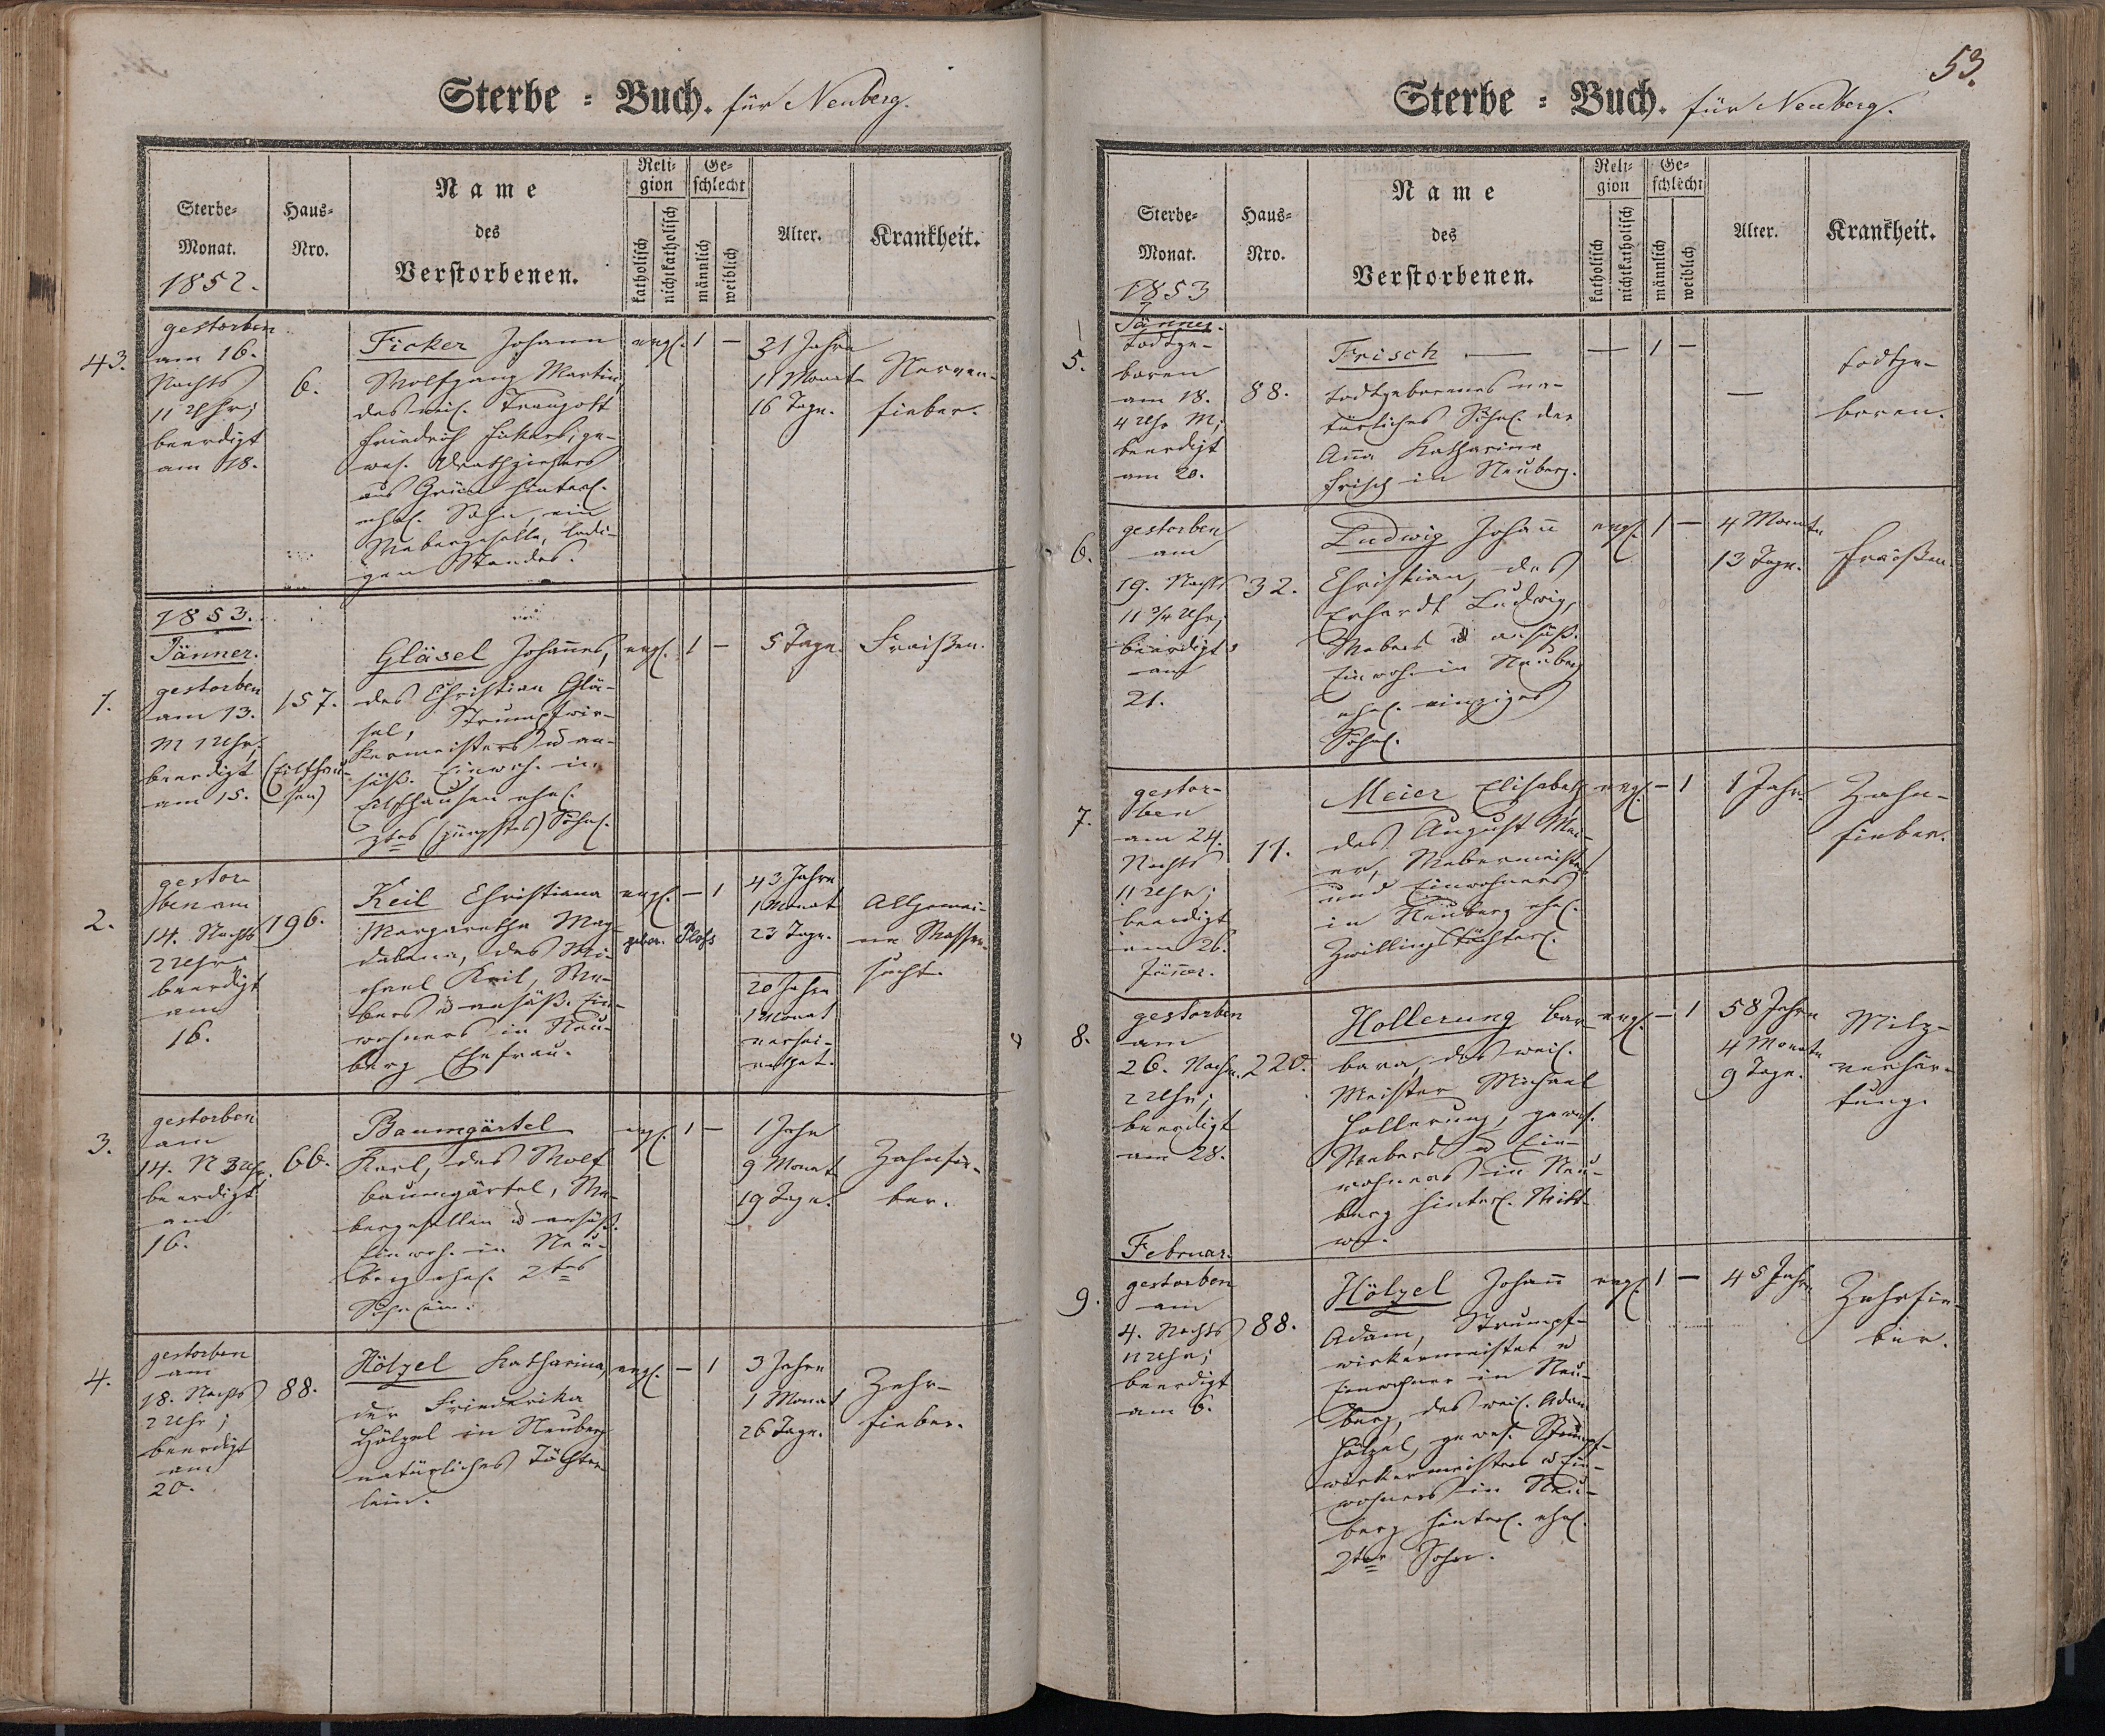 Sterbe-Buch. für Neuberg.
Sterbe-
Monat.
1852.
Haus-
Nro.
Name
des
Verstorbenen.
Reli-
gion
katholisch
nichtkatholisch
Ge-
schlecht
männlich
weiblich
Alter.
Krankheit.
43.
gestorben
am 16.
Nachts
11 Uhr;
beerdigt
am 18.
6.
Ficker Johann
Wolfgang Martin,
des weil. Traugott
Friedrich Fickert, ge-
wes. Drathziehers
aus Grün hinterl.
ehel. Sohn, ein
Webergeselle, ledi-
gen Standes.
evgl.
1
—
31 Jahre
11 Monat
16 Tage.
Nerven-
fieber.
1853.
Jänner.
1.
gestorben
am 13.
M 1 Uhr;
beerdigt
am 15.
157.
(Eilfhau-
sen)
Gläsel Johannes,
des Christian Glä-
sel, Strumpfwir-
kermeisters u an-
säß. Einwoh. in
Eilfhausen ehel.
2tes (jüngstes) Söhnl.
evgl.
1
—
5 Tage.
Fraißen.
2.
gestor-
ben am
14. Nachts
2 Uhr
beerdigt
am
16.
196.
Keil Christiana
Margaretha Mag-
dalena, des Mi-
chael Keil, We-
bers u ansäß. Ein-
wohners in Neu-
berg Ehefrau.
evgl.
—
1
gebor. Ploß
43 Jahre
1 Monat
23 Tage.
20 Jahre
1 Monat
verhei-
rathet.
Allgemei-
ne Wasser-
sucht.
3.
gestorben
am
14. N 3 Uhr.
beerdigt
am
16.
66.
Baumgärtel
Karl, des Wolf
Baumgärtel, We-
bergesellen u ansäß.
Einwoh. in Neu-
berg ehel. 2tes
Söhnlein.
evgl.
1
—
1 Jahr
9 Monat
19 Tage.
Zahnfie-
ber.
4.
gestorben
am
18. Nachts
2 Uhr;
beerdigt
am
20.
88.
Hölzel Katharina,
der Friederika
Hölzel in Neuberg
natürliches Töchter-
lein.
evgl.
—
1
3 Jahre
1 Monat
26 Tage.
Zehr-
fieber.
53.
Sterbe-Buch. für Neuberg.
Sterbe-
Monat.
1853
Haus-
Nro.
Name
des
Verstorbenen.
Reli-
gion
katholisch
nichtkatholisch
Ge-
schlecht
männlich
weiblich
Alter.
Krankheit.
Jänner.
5.
todtge-
boren
am 18.
4 Uhr M;
beerdigt
am 20.
88.
Frisch —
todtgeborenes na-
türliches Söhnl. der
Ana Katharina
Frisch in Neuberg.
—
1
—
—
todtge-
boren.
6.
gestorben
am
19. Nachts
11 3/4 Uhr;
beerdigt
am
21.
32.
Ludwig Johan
Christian, des
Erhardt Ludwig,
Webers u ansäß.
Einwoh. in Neuberg
ehel. einziges
Söhnl.
evgl.
1
—
4 Monate
13 Tage.
Fraißen.
7.
gestor-
ben
am 24.
Nachts
11 Uhr;
beerdigt
am 26.
Jäner.
11.
Meier Elisabeth
des August Mei-
er, Webermeisters
und Einwohners
in Neuberg ehel.
Zwillingstöchterl.
evgl.
—
1
1 Jahr
Zahn-
fieber.
8.
gestorben
am
26. Nachm.
2 Uhr;
beerdigt
am 28.
220.
Hollerung Bar-
bara, des weil.
Meister Michael
Hollerung, gewes.
Webers u Ein-
wohners in Neu-
berg hinterl. Witt-
we.
evgl.
—
1
58 Jahre
4 Monate
9 Tage.
Milz-
verhär-
tung.
Februar.
9.
gestorben
am
4. Nachts
11 Uhr;
beerdigt
am 6.
88.
Hölzel Johan
Adam, Strumpf-
wirkermeister u
Einwohner in Neu-
berg, des weil. Adam
Hölzel, gewes. Strumpf-
wirkermeisters u Ein-
wohners in Neu-
berg hinterl. ehel.
2ter Sohn.
evgl.
1
—
45 Jahre
Zehrfie-
ber.